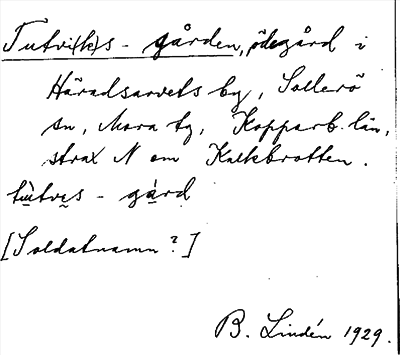 Tutvi(k)s-gården, ödegård i
Häradsarvets by, Sollerö
sn, Mora tg, Kopparb. län,
strax N om Kalkbrotten.
tùtvẹs - gàrd
[Soldatnamn?]
B. Lindén 1929.